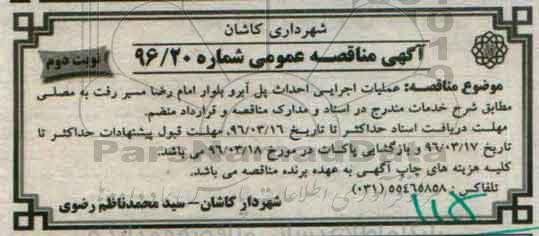 شهرداری کاشان
آگهی مناقصه عمومی شماره ۹۶/۲۰
نوبت دوم
موضوع مناقصه: عملیات اجرایی احداث پل آبرو بلوار امام رضا مسیر رفت به مصلی
مطابق شرح خدمات مندرج در اسناد و مدارک مناقصه و قرارداد منضم.
مهلت دریافت اسناد حداکثر تا تاریخ ۹۶/۰۳/۱۶، مهلت قبول پیشنهادات حداکثر تا
تاریخ ۹۶/۰۳/۱۷ و بازگشایی پاکات در مورخ ۹۶/۰۳/۱۸ می باشد.
کلیه هزینه های چاپ آگهی به عهده برنده مناقصه می باشد.
تلفاکس: ۵۵۴۶۵۸۵۸ (۰۳۱)
شهردار کاشان – سید محمدناظم رضوی